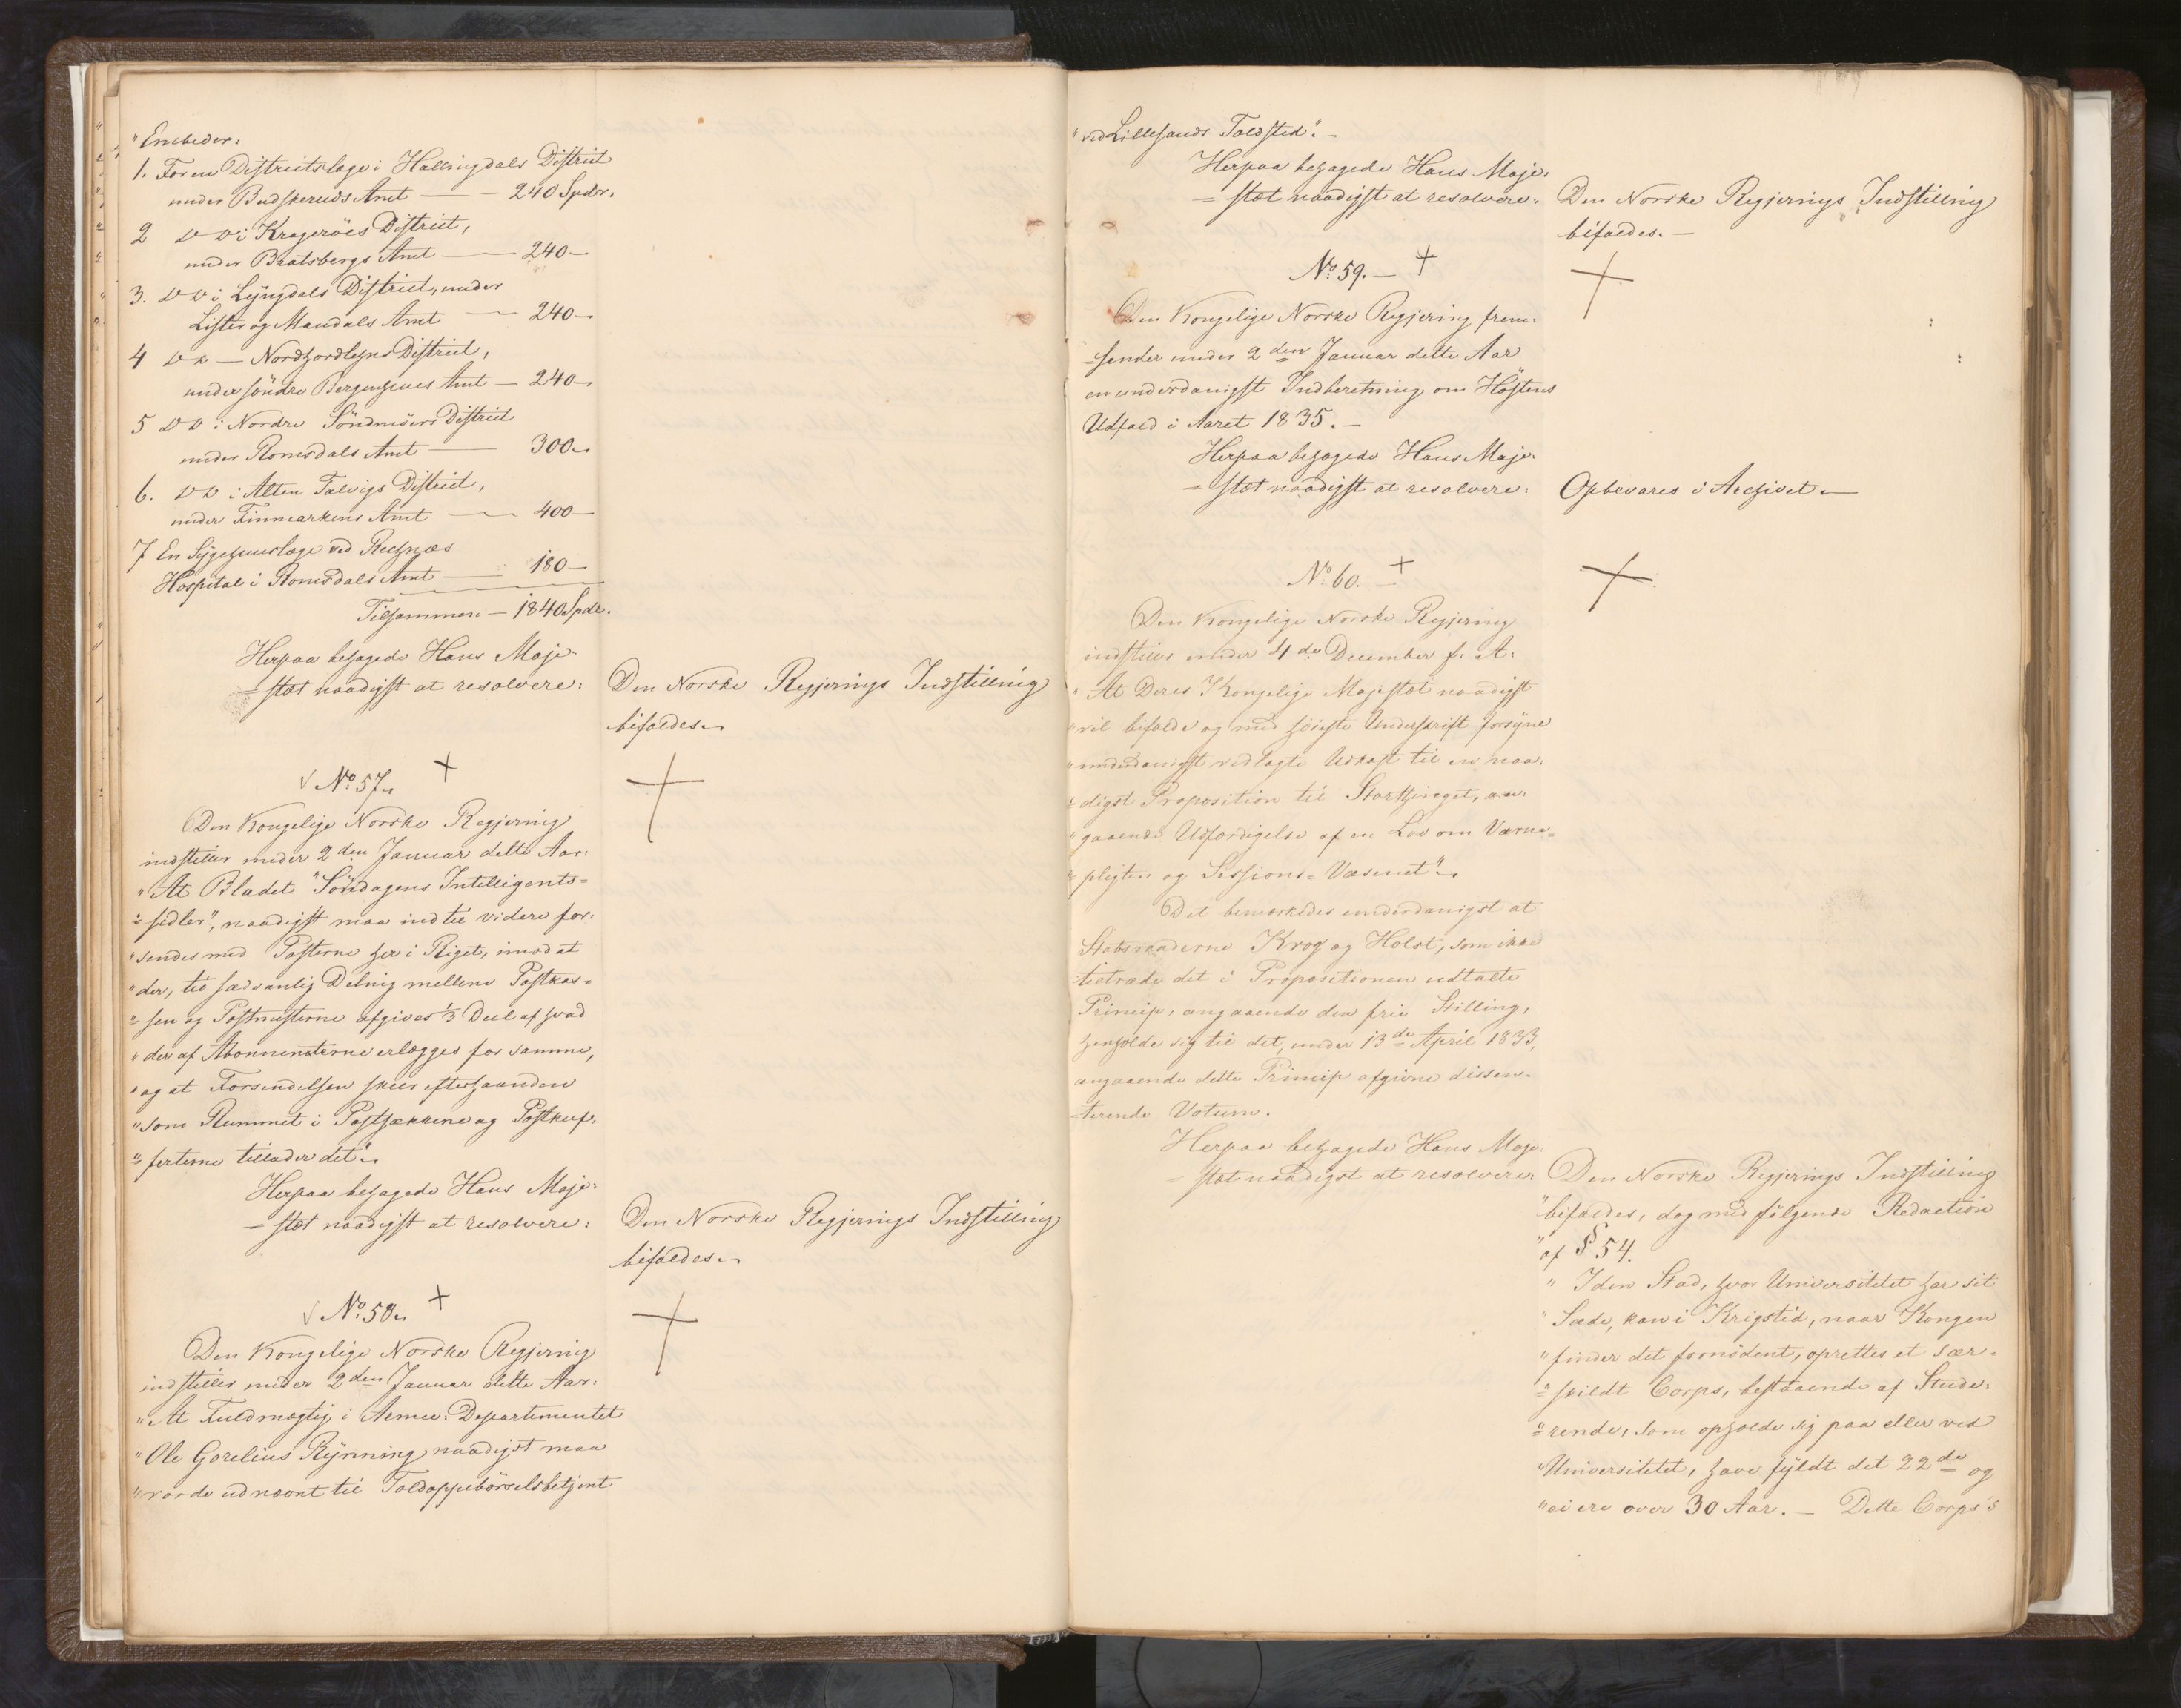 "Embeder:
1. For en Districtslæge i Hallingdals District
under Budskeruds Amt — 240 Spdr.
2 do do i Krageröes District,
under Bratsbergs Amt — 240 —
3. do do i Lÿngdals District, under
Lister og Mandals Amt — 240 —
4 do do — Nordhordlehns District,
under söndre Bergenhuus Amt — 240 —
5 do do i Nordre Söndmöers District
under Romsdals Amt — 300 —
6. do do i Alten Talvigs District,
under Finmarkens Amt — 400 —
7 En Sÿgehuuslæge ved Reknæs
Hospital i Romsdals Amt — 180 —
Tilsammen — 1840 Spdr.
Herpaa behagede Hans Maje-
=stæt naadigst at resolvere:
Den Norske Regjerings Indstilling
bifaldes.
√ No. 57. +
Den Kongelige Norske Regjering
indstiller under 2den Januar dette Aar:
"At Bladet "Söndagens Intelligents=
"=sedler", naadigst maa indtil videre for-
"sendes med Posterne her i Riget, imod at
"der, til sædvanlig Deling mellem Postkas=
"=sen og Postmesterne afgives 1/3 Deel af hvad
"der af Abonnenterne erlægges for samme,
"og at Forsendelsen skeer efterhaanden
"som Rummet i Postsækkene og Postkuf-
"=ferterne tillader det".
Herpaa behagede Hans Maje-
=stæt naadigst at resolvere:
Den Norske Regjerings Indstilling
bifaldes.
√ No. 58. +
Den Kongelige Norske Regjering
indstiller under 2den Januar dette Aar:
"At Fuldmægtig i Armee-Departementet
"Ole Gorelius Rÿnning naadigst maa
"vorde udnævnt til Toldoppebörselsbetjent
"ved Lillesands Toldsted". —
Herpaa behagede Hans Maje-
=stæt naadigst at resolvere:
Den Norske Regjerings Indstilling
bifaldes. —
No. 59. — +
Den Kongelige Norske Regjering frem-
=sender under 2den Januar dette Aar
en underdanigst Indberetning om Höstens
Udfald i Aaret 1835. —
Herpaa behagede Hans Maje-
=stæt naadigst at resolvere:
Opbevares i Archivet —
No. 60. — +
Den Kongelige Norske Regjering
indstiller under 4de December f. A:
"At Deres Kongelige Majestæt naadigst
"vil bifalde og med höieste Underskrift forsÿne
"underdanigst vedlagte Udkast til en naa-
"=digst Proposition til Storthinget, an-
"gaaende Udfærdigelse af en Lov om Værne-
"=pligten og Sessions=Væsenet".
Det bemærkedes underdanigst at
Statsraaderne Krog og Holst, som ikke
tiltræde det i Propositionen udtalte
Princip, angaaende den frie Stilling,
henholde sig til det, under 13de April 1833,
angaaende dette Princip afgivne dissen-
=terende Votum.
Herpaa behagede Hans Maje-
=stæt naadigst at resolvere:
Den Norske Regjerings Indstilling
"bifaldes, dog med fölgende Redaction
"af § 54.
"I den Stad, hvor Universitetet har sit
"Sæde, kan i Krigstid, naar Kongen
"finder det fornödent, oprettes et sær-
"=skildt Corps, bestaaende af Stude-
"=rende, som opholde sig paa eller ved
"Universitetet, have fÿldt det 22de og
"ei ere over 30 Aar. — Dette Corps's